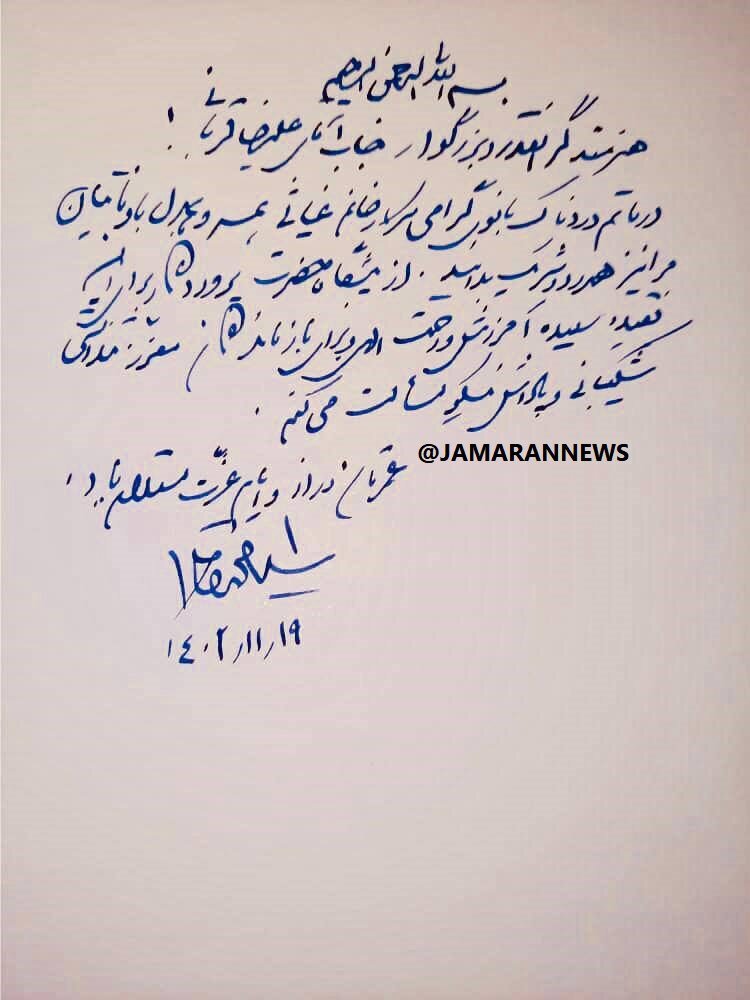 بسم الله الرحمن الرحیم
هنرمند گرانقدر و بزرگوار جناب آقای علیرضا قربانی!
در ماتم دردناک بانوی گرامی سرکار خانم غیاثی همسر و همدل باوفایتان
مرا نیز همدرد و شریک بدانید. از پیشگاه حضرت پروردگار برای این
فقیدهٔ سعیده آمرزش و رحمت الهی و برای بازماندگان معزز شکر
شکیبائی و پاداش نیکو مسألت می‌کنم.
عمرتان دراز و ایام عزت مستدام باد.
@JAMARANNEWS
سید محمد خاتمی
۱۴۰۲/۱۱/۱۹